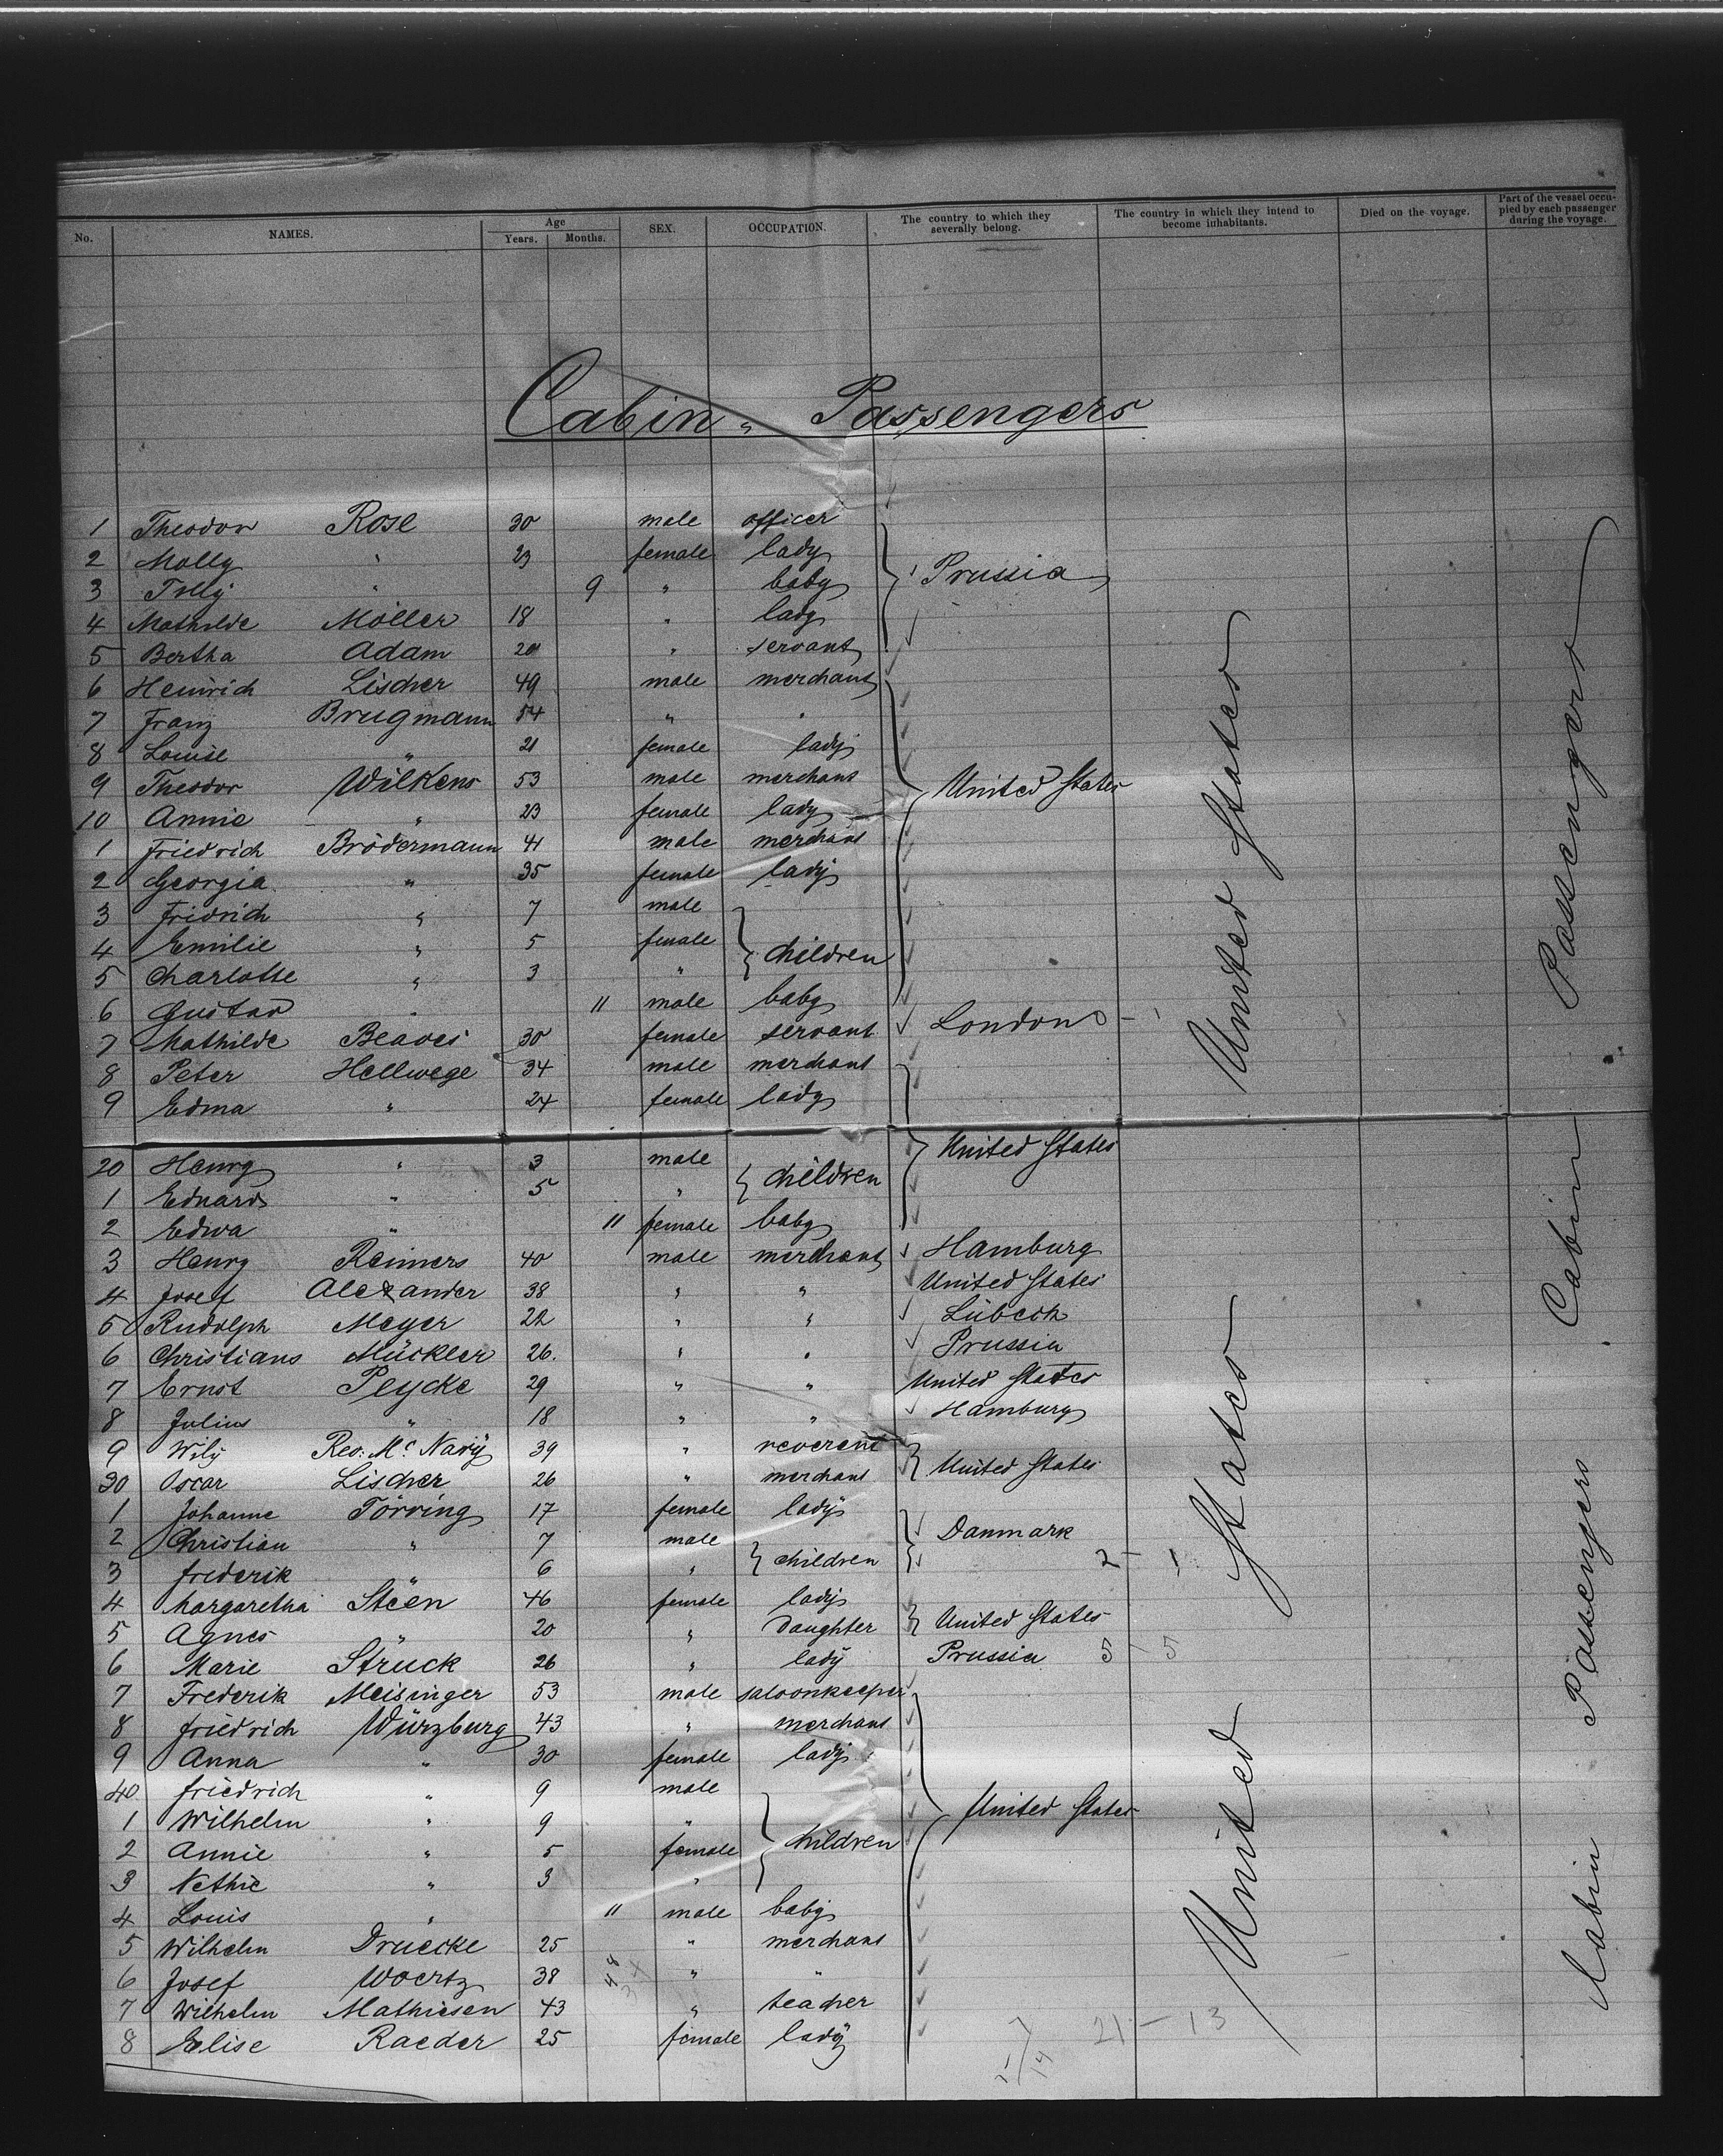 No. NAMES. Age Years. Months. SEX. OCCUPATION. The country to which they severally belong. The country in which they intend to become inhabitants. Died on the voyage. Part of the vessel occupied by each passenger during the voyage.
Cabin " Passengers
1 Theodor Rose 30 male officer
2 Molly " 23 female lady
3 " 9 " baby Prussia
4 Mathilde Möller 18 " lady
5 Bertha Adam 20 " servant
6 Heinrich Lischer 49 male merchant
7 Franz Brugmann 54 " "
8 Louise " 21 female lady
9 Theodor Wilkens 53 male merchant United States
10 Annie " 23 female lady
1 Friedrich Brödermann 41 male merchant
2 Georgia " 35 female lady
3 Fridrich " 7 male
4 Emilie " 5 female children
5 Charlotte " 3 "
6 Gustav " 11 male baby
7 Mathilde Beaves 30 female servant London - 1
8 Peter Hellwege 34 male merchant
9 Edma " 24 female lady
20 Henry " 3 male United States
1 Eduard " 5 " children
2 Edwa " 11 female baby
3 Henry Reimers 40 male merchant Hamburg
4 Josef Alexander 38 " " United States
5 Rudolph Meyer 22 " " Lübeck
6 Christians Mückler 26. " " Prussia
7 Ernst Peycke 29 " " United States
8 Julius " 18 " " Hamburg
9 Wily Rev. Mc Navy 39 " reverent
30 Oscar Lischer 26 " merchant United States
1 Johanne Törring 17 female lady
2 Christian " 7 male Danmark
3 frederik " 6 " children 2 - 1
4 Margaretha Steen 46 female lady
5 Agnes " 20 " Daughter United States
6 Marie Struck 26 " lady Prussia 5 - 5
7 Frederik Meisinger 53 male saloonkeeper
8 friedrich Würzburg 43 " merchant
9 Anna " 30 female lady
40 friedrich " 9 male
1 Wilhelm " 9 " United States
2 Annie " 5 female children
3 Nethie " 3 "
4 Louis " 11 male baby
5 Wilhelm Druecke 25 " merchant
6 Josef Woertz 38 48 " "
7 Wilhelm Mathiesen 43 " teacher
8 Elise Raeder 25 female lady 21 - 13
United States
United States
Cabin Passengers
Cabin Passengers